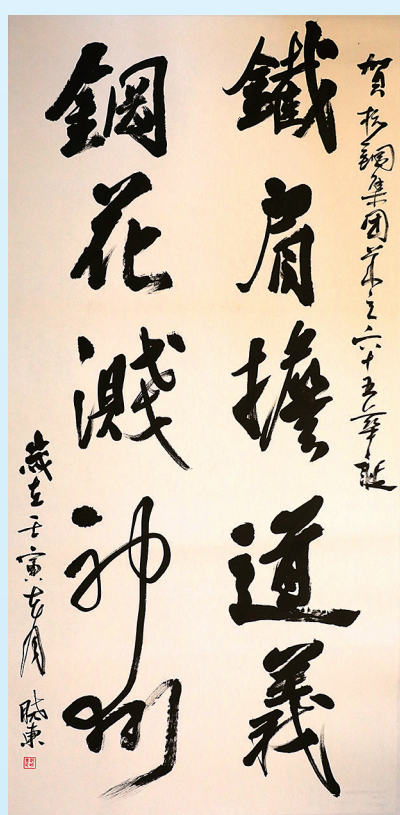 賀杭鋼集团成立六十五華誕
鐵肩擔道義
鋼花濺神州
歲在壬寅月東